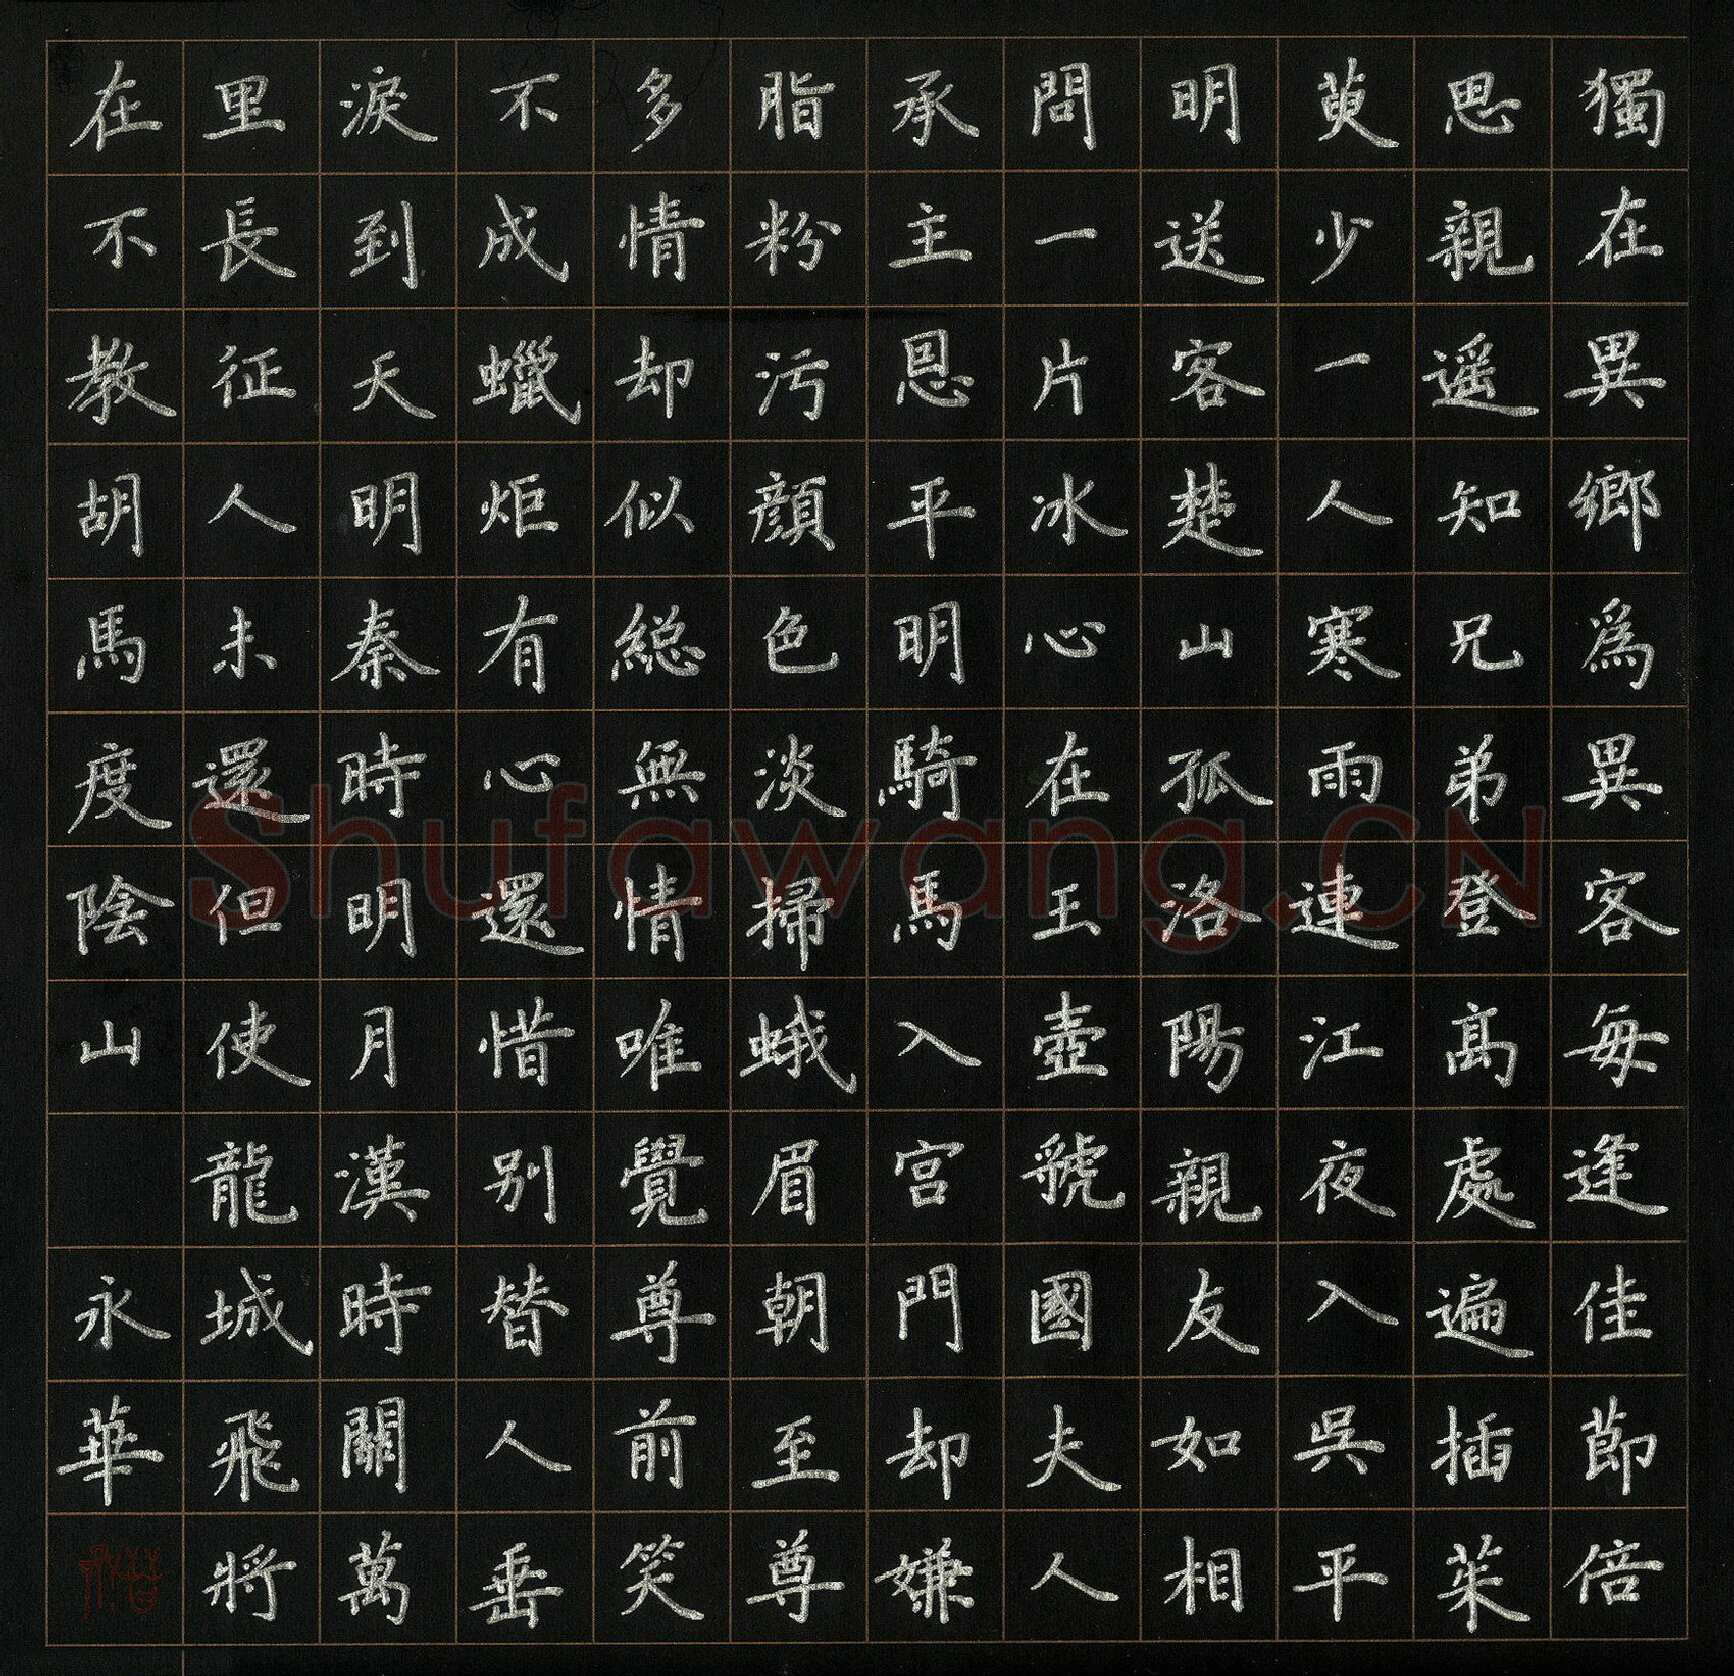 獨在異鄉為異客每逢佳節倍
思親遥知兄弟登高處遍插茱
萸少一人寒雨連江夜入吳平
明送客楚山孤洛陽親友如相
問一片冰心在玉壺虢國夫人
承主恩平明騎馬入宮門却嫌
脂粉污顏色淡掃蛾眉朝至尊
多情却似総無情唯覺尊前笑
不成蠟炬有心還惜別替人垂
淚到天明秦時明月漢時關萬
里長征人未還但使龍城飛將
在不教胡馬度陰山 永華
Shufawang.CN